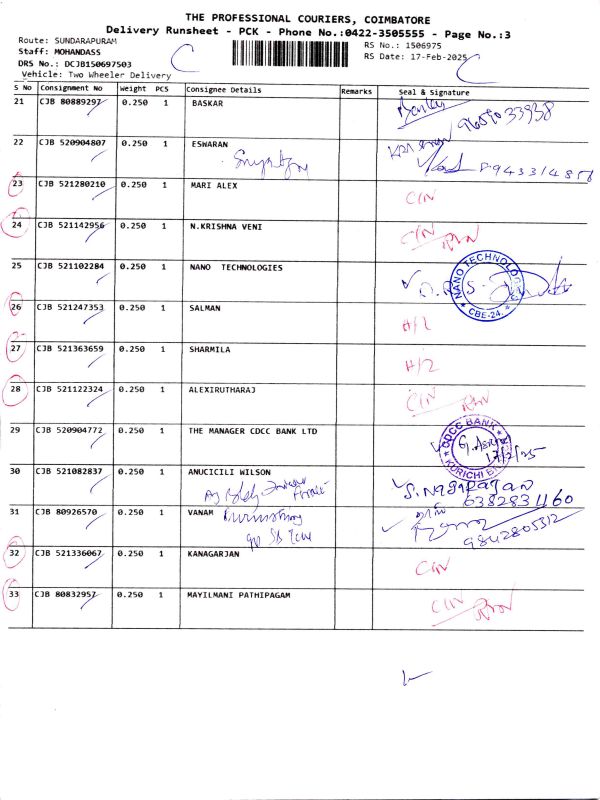 THE PROFESSIONAL COURIERS, COIMBATORE
Delivery Runsheet - PCK - Phone No.:0422-3505555 - Page No.:3
Route: SUNDARAPURAM
RS No.: 1506975
Staff: MOHANDASS
RS Date: 17-Feb-2025
DRS No.: DCJB150697503
C
C
Vehicle: Two Wheeler Delivery
S No Consignment No Weight PCS Consignee Details Remarks Seal & Signature
21 CJB 80889297 0.250 1 BASKAR
22 CJB 520904807 0.250 1 ESWARAN
23 CJB 521280210 0.250 1 MARI ALEX C/N
24 CJB 521142956 0.250 1 N.KRISHNA VENI C/N
25 CJB 521102284 0.250 1 NANO TECHNOLOGIES
NANO TECHNOLOG
CBE-24.
26 CJB 521247353 0.250 1 SALMAN
27 CJB 521363659 0.250 1 SHARMILA
28 CJB 521122324 0.250 1 ALEXIRUTHARAJ C/N
29 CJB 520904772 0.250 1 THE MANAGER CDCC BANK LTD
CDCC BANK
KURICHI
17/2/25
30 CJB 521082837 0.250 1 ANUCICILI WILSON
S. Nagarajan
6382831160
31 CJB 80926570 0.250 1 VANAM
9842805312
32 CJB 521336067 0.250 1 KANAGARJAN C/N
33 CJB 80832957 0.250 1 MAYILMANI PATHIPAGAM C/N